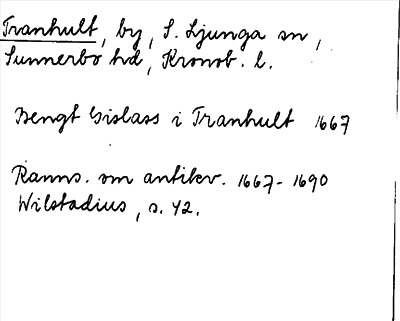 Tranhult, by, S. Ljunga sn,
Sunnerbo hd, Kronob. l.
Bengt Gislass i Tranhult 1667
Ranns. om antikv. 1667-1690
Wilstadius, s. 42.